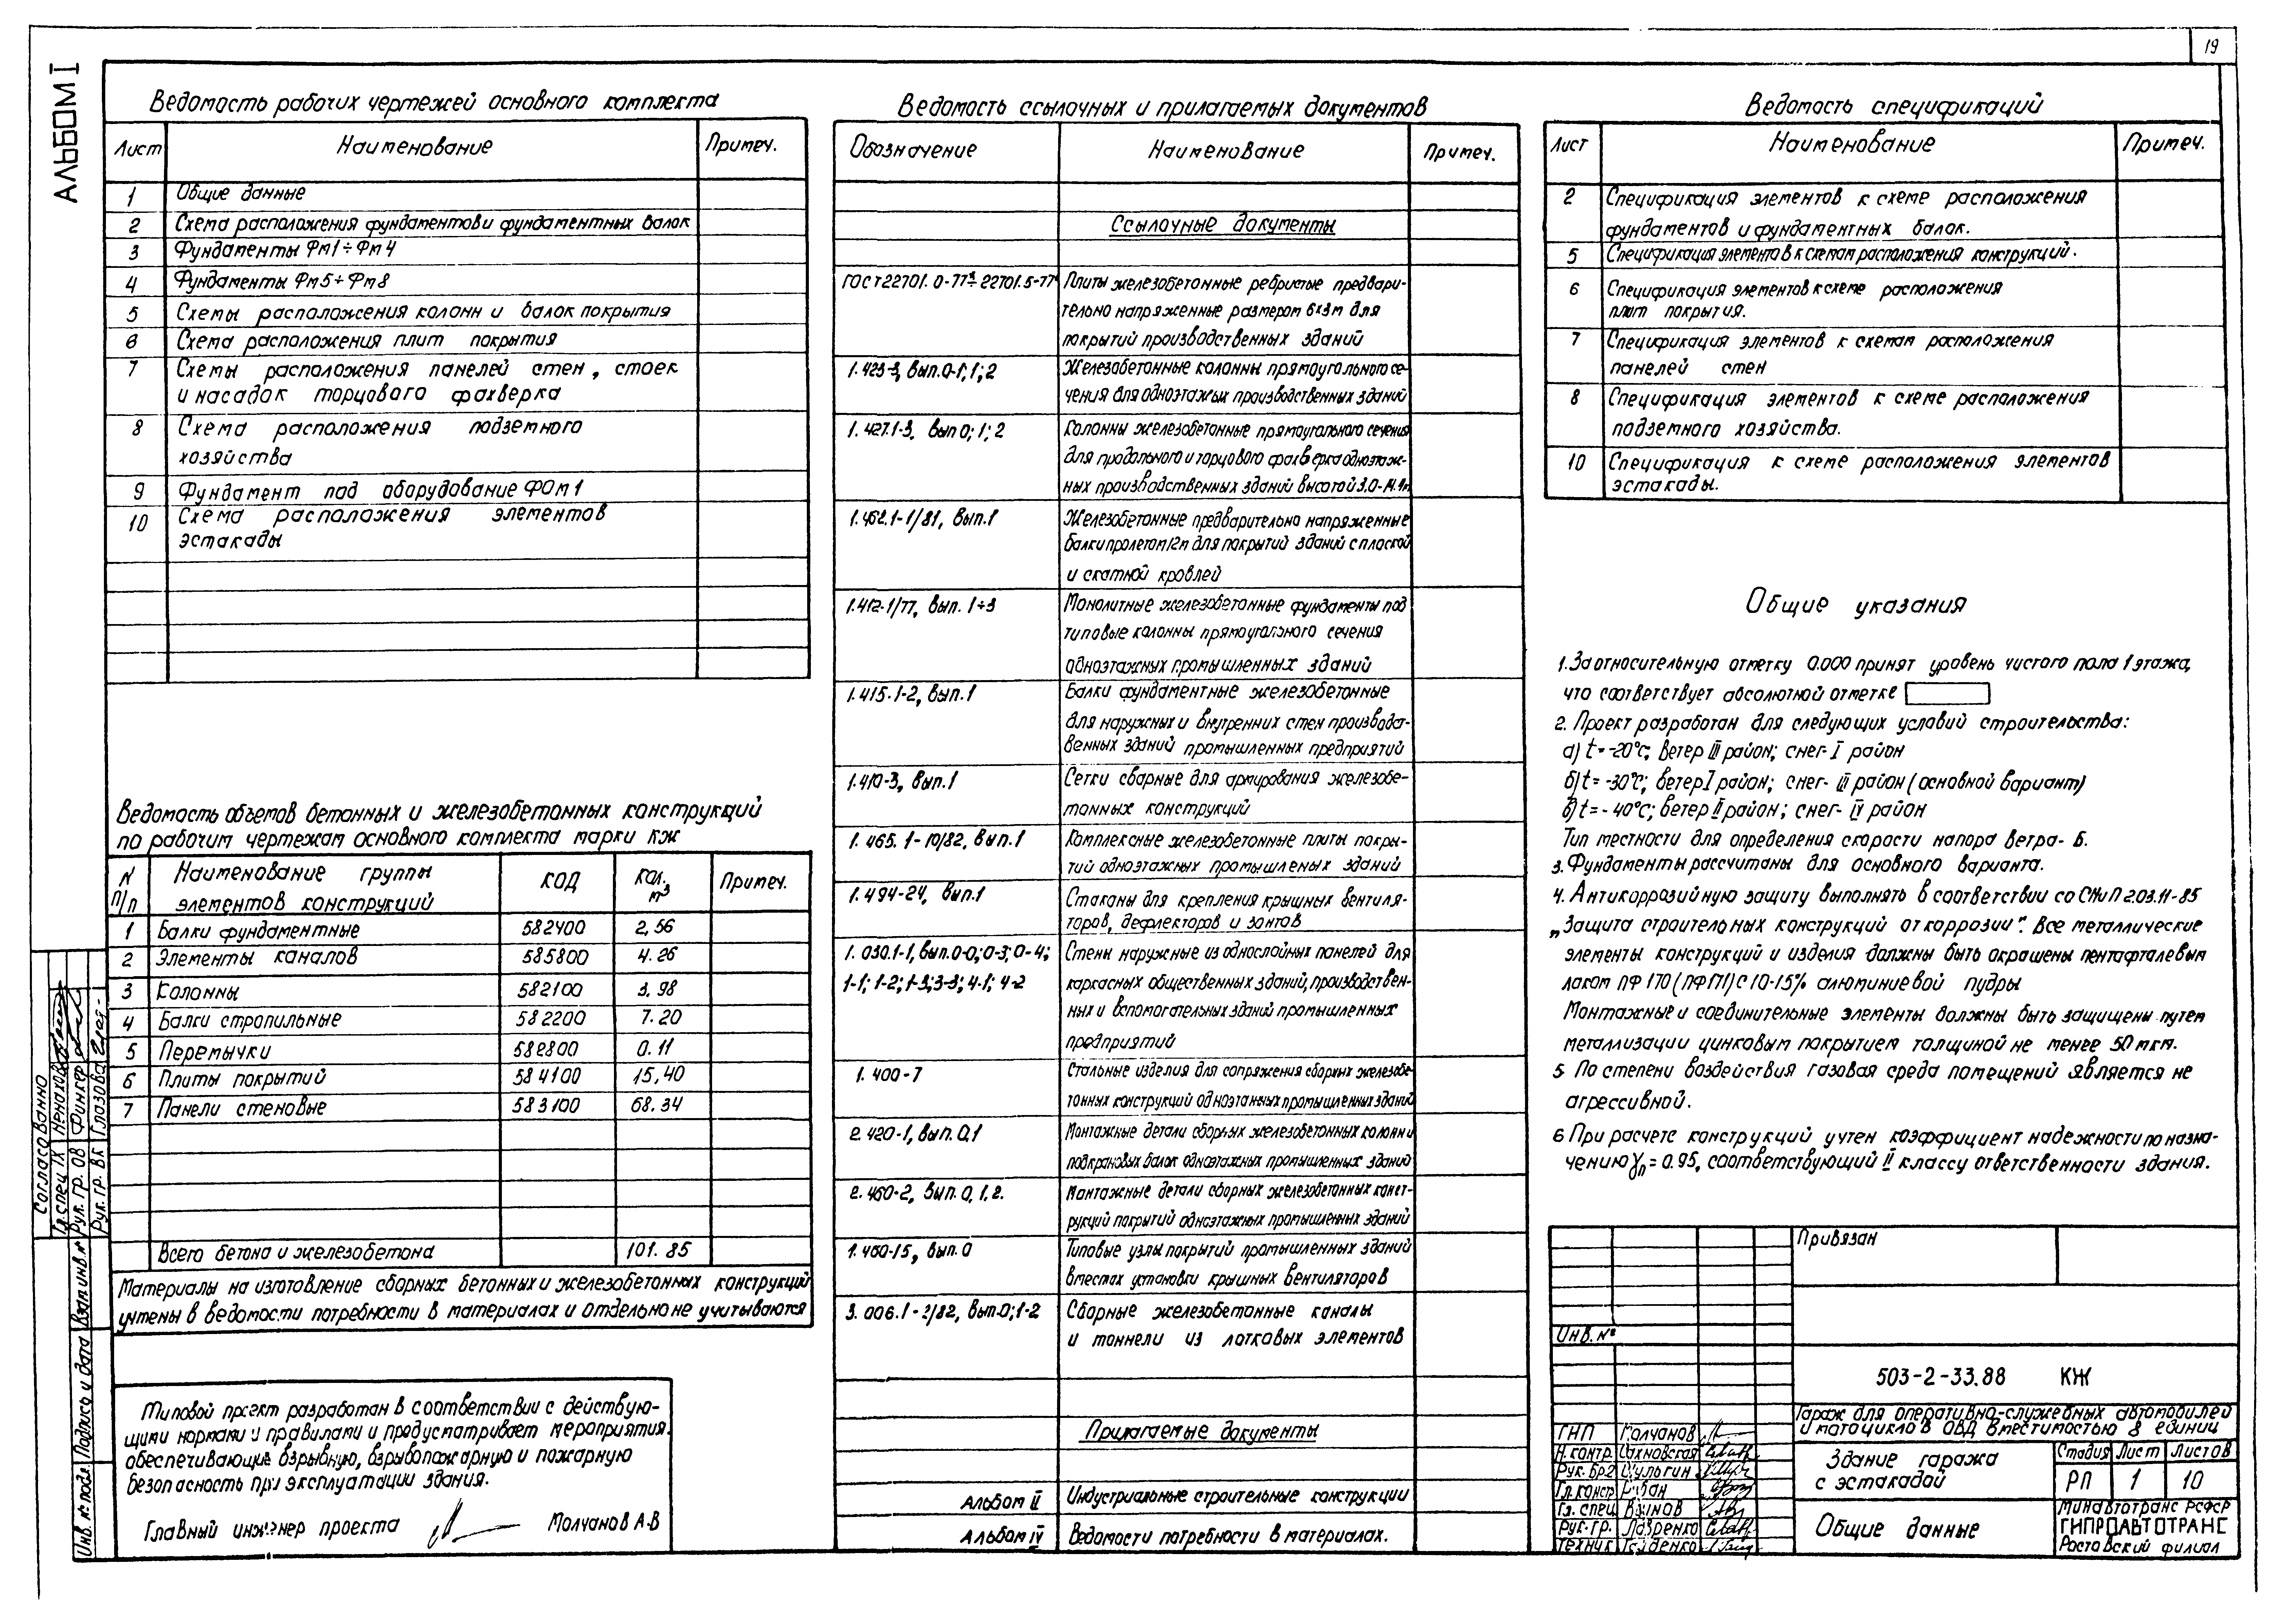 19
АЛЬБОМ I
Ведомость рабочих чертежей основного комплекта
Лист Наименование Примеч.
1 Общие данные
2 Схема расположения фундаментов и фундаментных балок
3 Фундаменты Фм1÷Фм4
4 Фундаменты Фм5÷Фм8
5 Схемы расположения колонн и балок покрытия
6 Схема расположения плит покрытия
7 Схемы расположения панелей стен, стоек
и насадок торцового фахверка
8 Схема расположения подземного
хозяйства
9 Фундамент под оборудование ФОм1
10 Схема расположения элементов
эстакады
Ведомость объемов бетонных и железобетонных конструкций
по рабочим чертежам основного комплекта марки КЖ
N п/п Наименование группы элементов конструкций КОД КОЛ. м³ Примеч.
1 Балки фундаментные 582400 2,56
2 Элементы каналов 585800 4.26
3 Колонны 582100 3.98
4 Балки стропильные 582200 7.20
5 Перемычки 582800 0.11
6 Плиты покрытий 584100 15,40
7 Панели стеновые 583100 68.34
Всего бетона и железобетона 101.85
Материалы на изготовление сборных бетонных и железобетонных конструкций
учтены в ведомости потребности в материалах и отдельно не учитываются
Типовой проект разработан в соответствии с действую-
щими нормами и правилами и предусматривает мероприятия
обеспечивающие взрывную, взрывопожарную и пожарную
безопасность при эксплуатации здания.
Главный инженер проекта Молчанов А.В
Ведомость ссылочных и прилагаемых документов
Обозначение Наименование Примеч.
Ссылочные документы
ГОСТ 22701.0-77÷22701.5-77 Плиты железобетонные ребристые предвари-
тельно напряженные размером 6х3м для
покрытий производственных зданий
1.423-3, вып.0-1; 1; 2 Железобетонные колонны прямоугольного се-
чения для одноэтажых производственных зданий
1.427.1-3, вып 0; 1; 2 Колонны железобетонные прямоугольного сечения
для продольного и торцового фахверка одноэтаж-
ных производственных зданий высотой 3.0-14.4м
1.462.1-1/81, вып.1 Железобетонные предварительно напряженные
балки пролетом 12м для покрытий зданий с плоской
и скатной кровлей
1.412-1/77, вып. 1÷3 Монолитные железобетонные фундаменты под
типовые колонны прямоугольного сечения
одноэтажных промышленных зданий
1.415.1-2, вып.1 Балки фундаментные железобетонные
для наружных и внутренних стен производст-
венных зданий промышленных предприятий
1.410-3, вып.1 Сетки сварные для армирования железобе-
тонных конструкций
1.465.1-10/82, вып.1 Комплексные железобетонные плиты покры-
тий одноэтажных промышленых зданий
1.494-24, вып.1 Стаканы для крепления крышных вентиля-
торов, дефлекторов и зонтов
1.030.1-1, вып.0-0; 0-3; 0-4; Стены наружные из однослойных панелей для
1-1; 1-2; 1-3; 3-3; 4-1; 4-2 каркасных общественных зданий, производствен-
ных и вспомогательных зданий промышленных
предприятий
1.400-7 Стальные изделия для сопряжения сборных железобе-
тонных конструкций одноэтажных промышленных зданий
2.420-1, вып.0,1 Монтажные детали сборных железобетонных колонн и
подкрановых балок одноэтажных промышленных зданий
2.460-2, вып.0,1,2. Монтажные детали сборных железобетонных конст-
рукций покрытий одноэтажных промышленных зданий
1.460-15, вып.0 Типовые узлы покрытий промышленных зданий
вместах установки крышных вентиляторов
3.006.1-2/82, вып.0; 1-2 Сборные железобетонные каналы
и тоннели из лотковых элементов
Прилагаемые документы
Альбом II Индустриальные строительные конструкции
Альбом IV Ведомости потребности в материалах.
Ведомость спецификаций
Лист Наименование Примеч.
2 Спецификация элементов к схеме расположения
фундаментов и фундаментных балок.
5 Спецификация элементов к схемам расположения конструкций.
6 Спецификация элементов к схеме расположения
плит покрытия.
7 Спецификация элементов к схемам расположения
панелей стен
8 Спецификация элементов к схеме расположения
подземного хозяйства.
10 Спецификация к схеме расположения элементов
эстакады.
Общие указания
1. За относительную отметку 0.000 принят уровень чистого пола 1 этажа,
что соответствует абсолютной отметке
2. Проект разработан для следующих условий строительства:
а) t=-20°с; ветер III район; снег-I район
б) t=-30°с; ветер I район; снег-III район (основной вариант)
в) t=-40°с; ветер II район; снег-IV район
Тип местности для определения скорости напора ветра-Б.
3. Фундаменты рассчитаны для основного варианта.
4. Антикоррозийную защиту выполнять в соответствии со СНиП 2.03.11-85
„Защита строительных конструкций от коррозии". Все металлические
элементы конструкций и изделия должны быть окрашены пентафталевым
лаком ПФ170 (ПФ171) с 10-15% алюминиевой пудры
Монтажные и соединительные элементы должны быть защищены путем
металлизации цинковым покрытием толщиной не менее 50мкм.
5. По степени воздействия газовая среда помещений является не
агрессивной.
6 При расчете конструкций учтен коэффициент надежности по назна-
чению γn=0.95, соответствующий II классу ответственности здания.
Привязан
Инв.№
503-2-33.88 КЖ
Гараж для оперативно-служебных автомобилей
и мотоциклов ОВД вместимостью 8 единиц
ГНП Молчанов
Н.контр. Сахновская
Рук.бр2 Шульгин
Гл.констр
Гл.спец
Рук.гр. Лавренко
Техник
Здание гаража
с эстакадой
Стадия Лист Листов
РП 1 10
Общие данные
Минавтотранс РСФСР
ГИПРОАВТОТРАНС
Ростовский филиал
Согласовано
Гл.спец ТХ Ненахов
Рук. гр. ОВ Финкер
Рук. гр. ВК Глазова
Инв.№ подл. Подпись и дата Взам инв.№